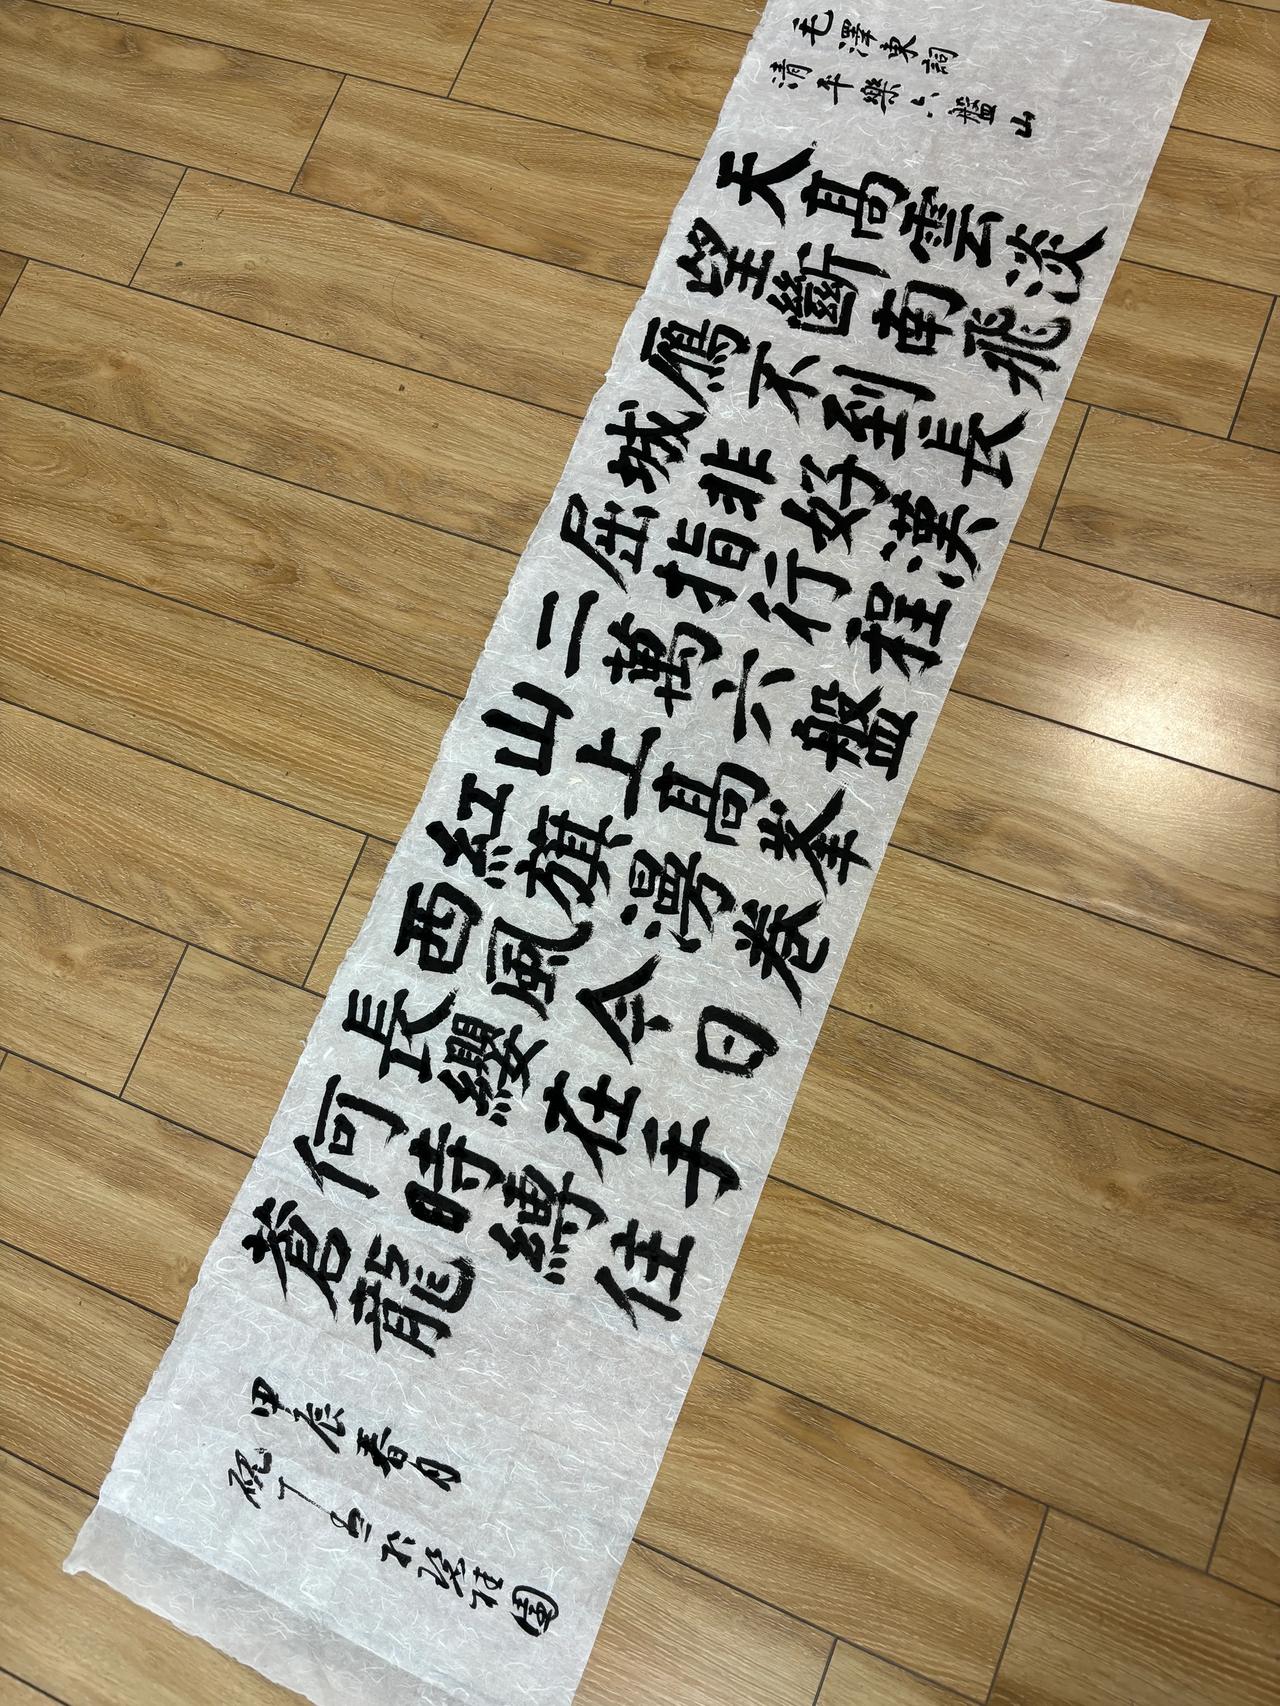 毛澤東詞
清平樂六盤山
天高雲淡
望斷南飛
雁不到長
城非好漢
屈指行程
二萬六盤
山上高峯
紅旗漫卷
西風今日
長纓在手
何時縛住
蒼龍
甲辰春月
於桂園